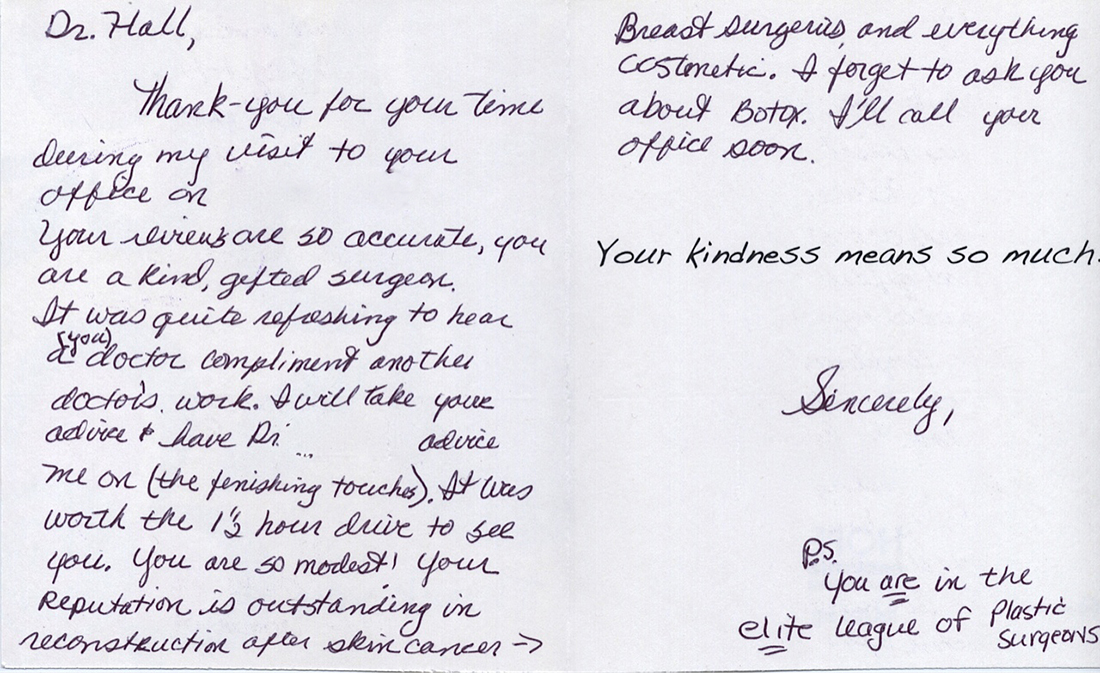 Dr. Hall,
Thank-you for your time
during my visit to your
office on
Your reviews are so accurate, you
are a kind, gifted surgeon.
It was quite refreshing to hear
(you)
a doctor compliment another
doctor's work. I will take your
advice & have Dr. advice
me on (the finishing touches). It was
worth the 1½ hour drive to see
you. You are so modest! Your
Reputation is outstanding in
reconstruction after skin cancer →
Breast surgeries, and everything
cosmetic. I forget to ask you
about Botox. I'll call your
office soon.
Your kindness means so much.
Sincerely,
P.S.
You are in the
elite league of Plastic
Surgeons